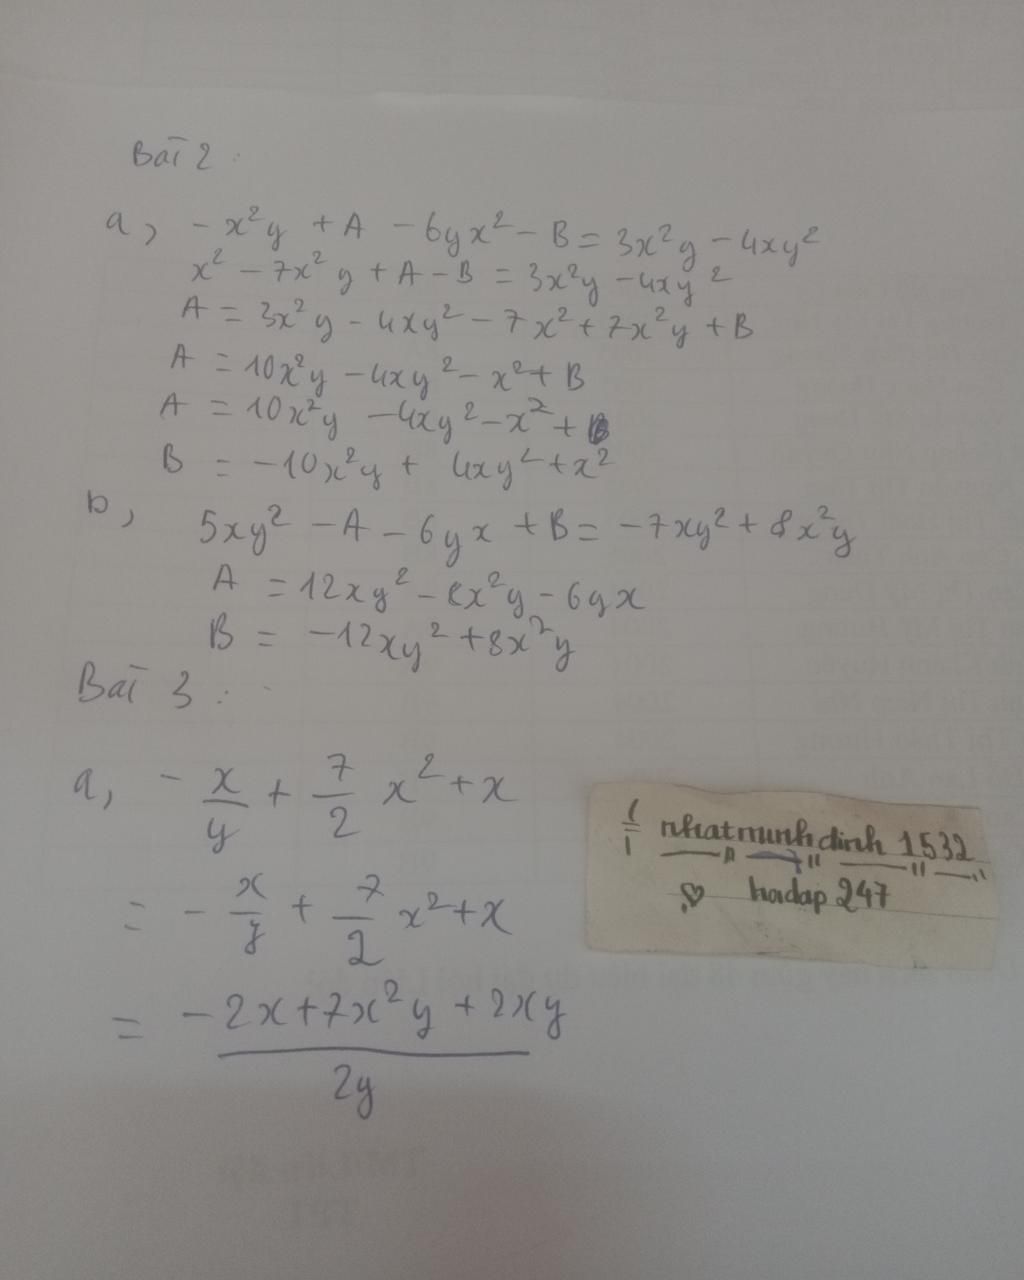 Bài 2:
a, - x²y + A - 6yx² - B = 3x²y - 4xy²
x² - 7x²y + A - B = 3x²y - 4xy²
A = 3x²y - 4xy² - 7x² + 7x²y + B
A = 10x²y - 4xy² - x² + B
A = 10x²y - 4xy² - x² + B
B = -10x²y + 4xy² + x²
b, 5xy² - A - 6yx + B = -7xy² + 8x²y
A = 12xy² - 8x²y - 6yx
B = -12xy² + 8x²y
Bài 3:
a, - x/y + 7/2 x² + x
= - x/y + 7/2 x² + x
= (-2x + 7x²y + 2xy)/2y
nhatminhdinh 1532
hoidap 247